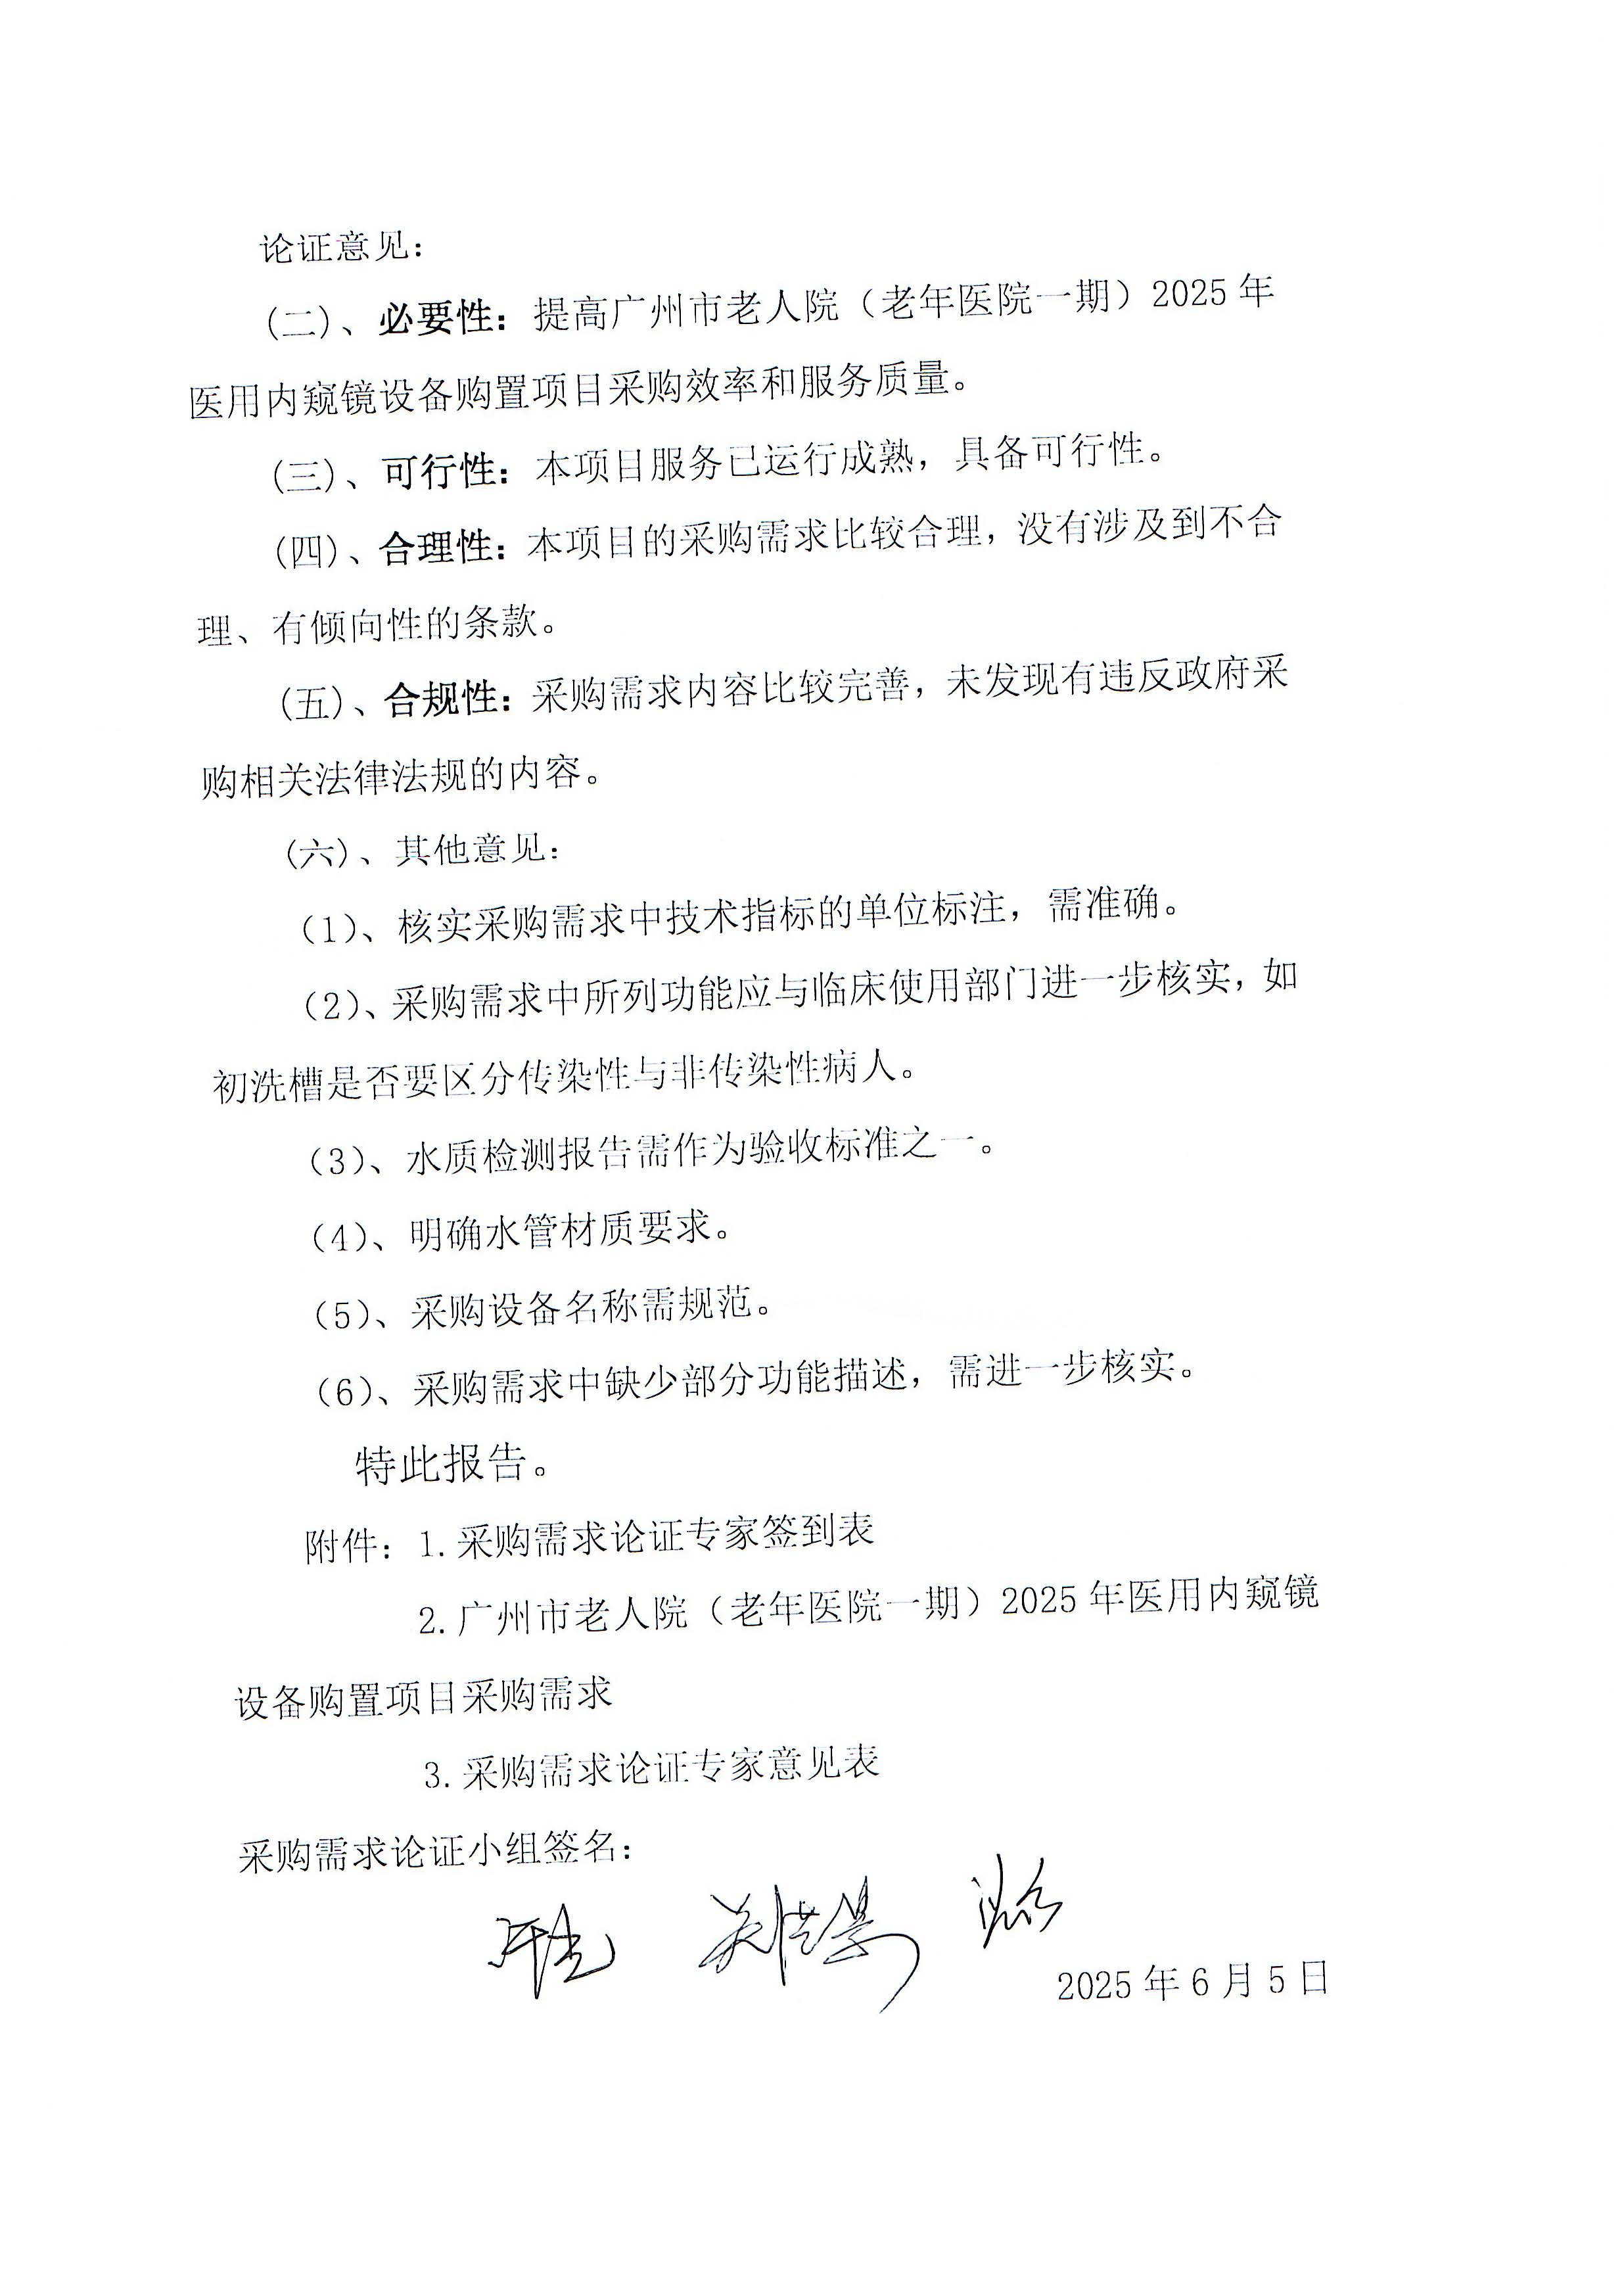 论证意见：
（二）、必要性：提高广州市老人院（老年医院一期）2025 年
医用内窥镜设备购置项目采购效率和服务质量。
（三）、可行性：本项目服务已运行成熟，具备可行性。
（四）、合理性：本项目的采购需求比较合理，没有涉及到不合
理、有倾向性的条款。
（五）、合规性：采购需求内容比较完善，未发现有违反政府采
购相关法律法规的内容。
（六）、其他意见：
（1）、核实采购需求中技术指标的单位标注，需准确。
（2）、采购需求中所列功能应与临床使用部门进一步核实，如
初洗槽是否要区分传染性与非传染性病人。
（3）、水质检测报告需作为验收标准之一。
（4）、明确水管材质要求。
（5）、采购设备名称需规范。
（6）、采购需求中缺少部分功能描述，需进一步核实。
特此报告。
附件：1.采购需求论证专家签到表
2.广州市老人院（老年医院一期）2025 年医用内窥镜
设备购置项目采购需求
3.采购需求论证专家意见表
采购需求论证小组签名：
2025 年 6 月 5 日